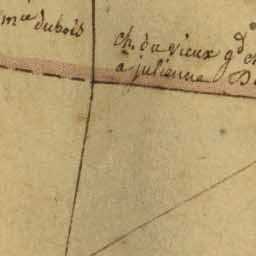 mce dubois
ch. du vieux gd ch
a julienne D